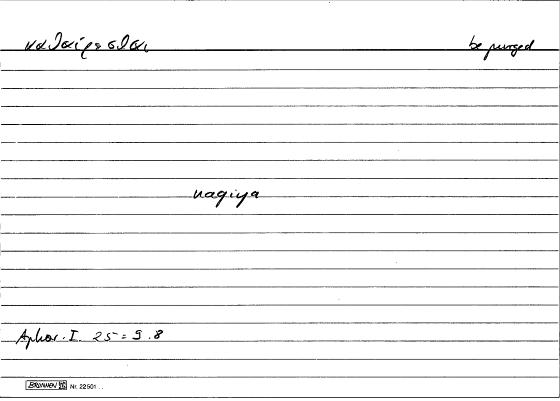 καθαίρεσθαι be purged
naqiya
Aphor. I. 25 = 9.8
BRUNNEN Nr. 22501